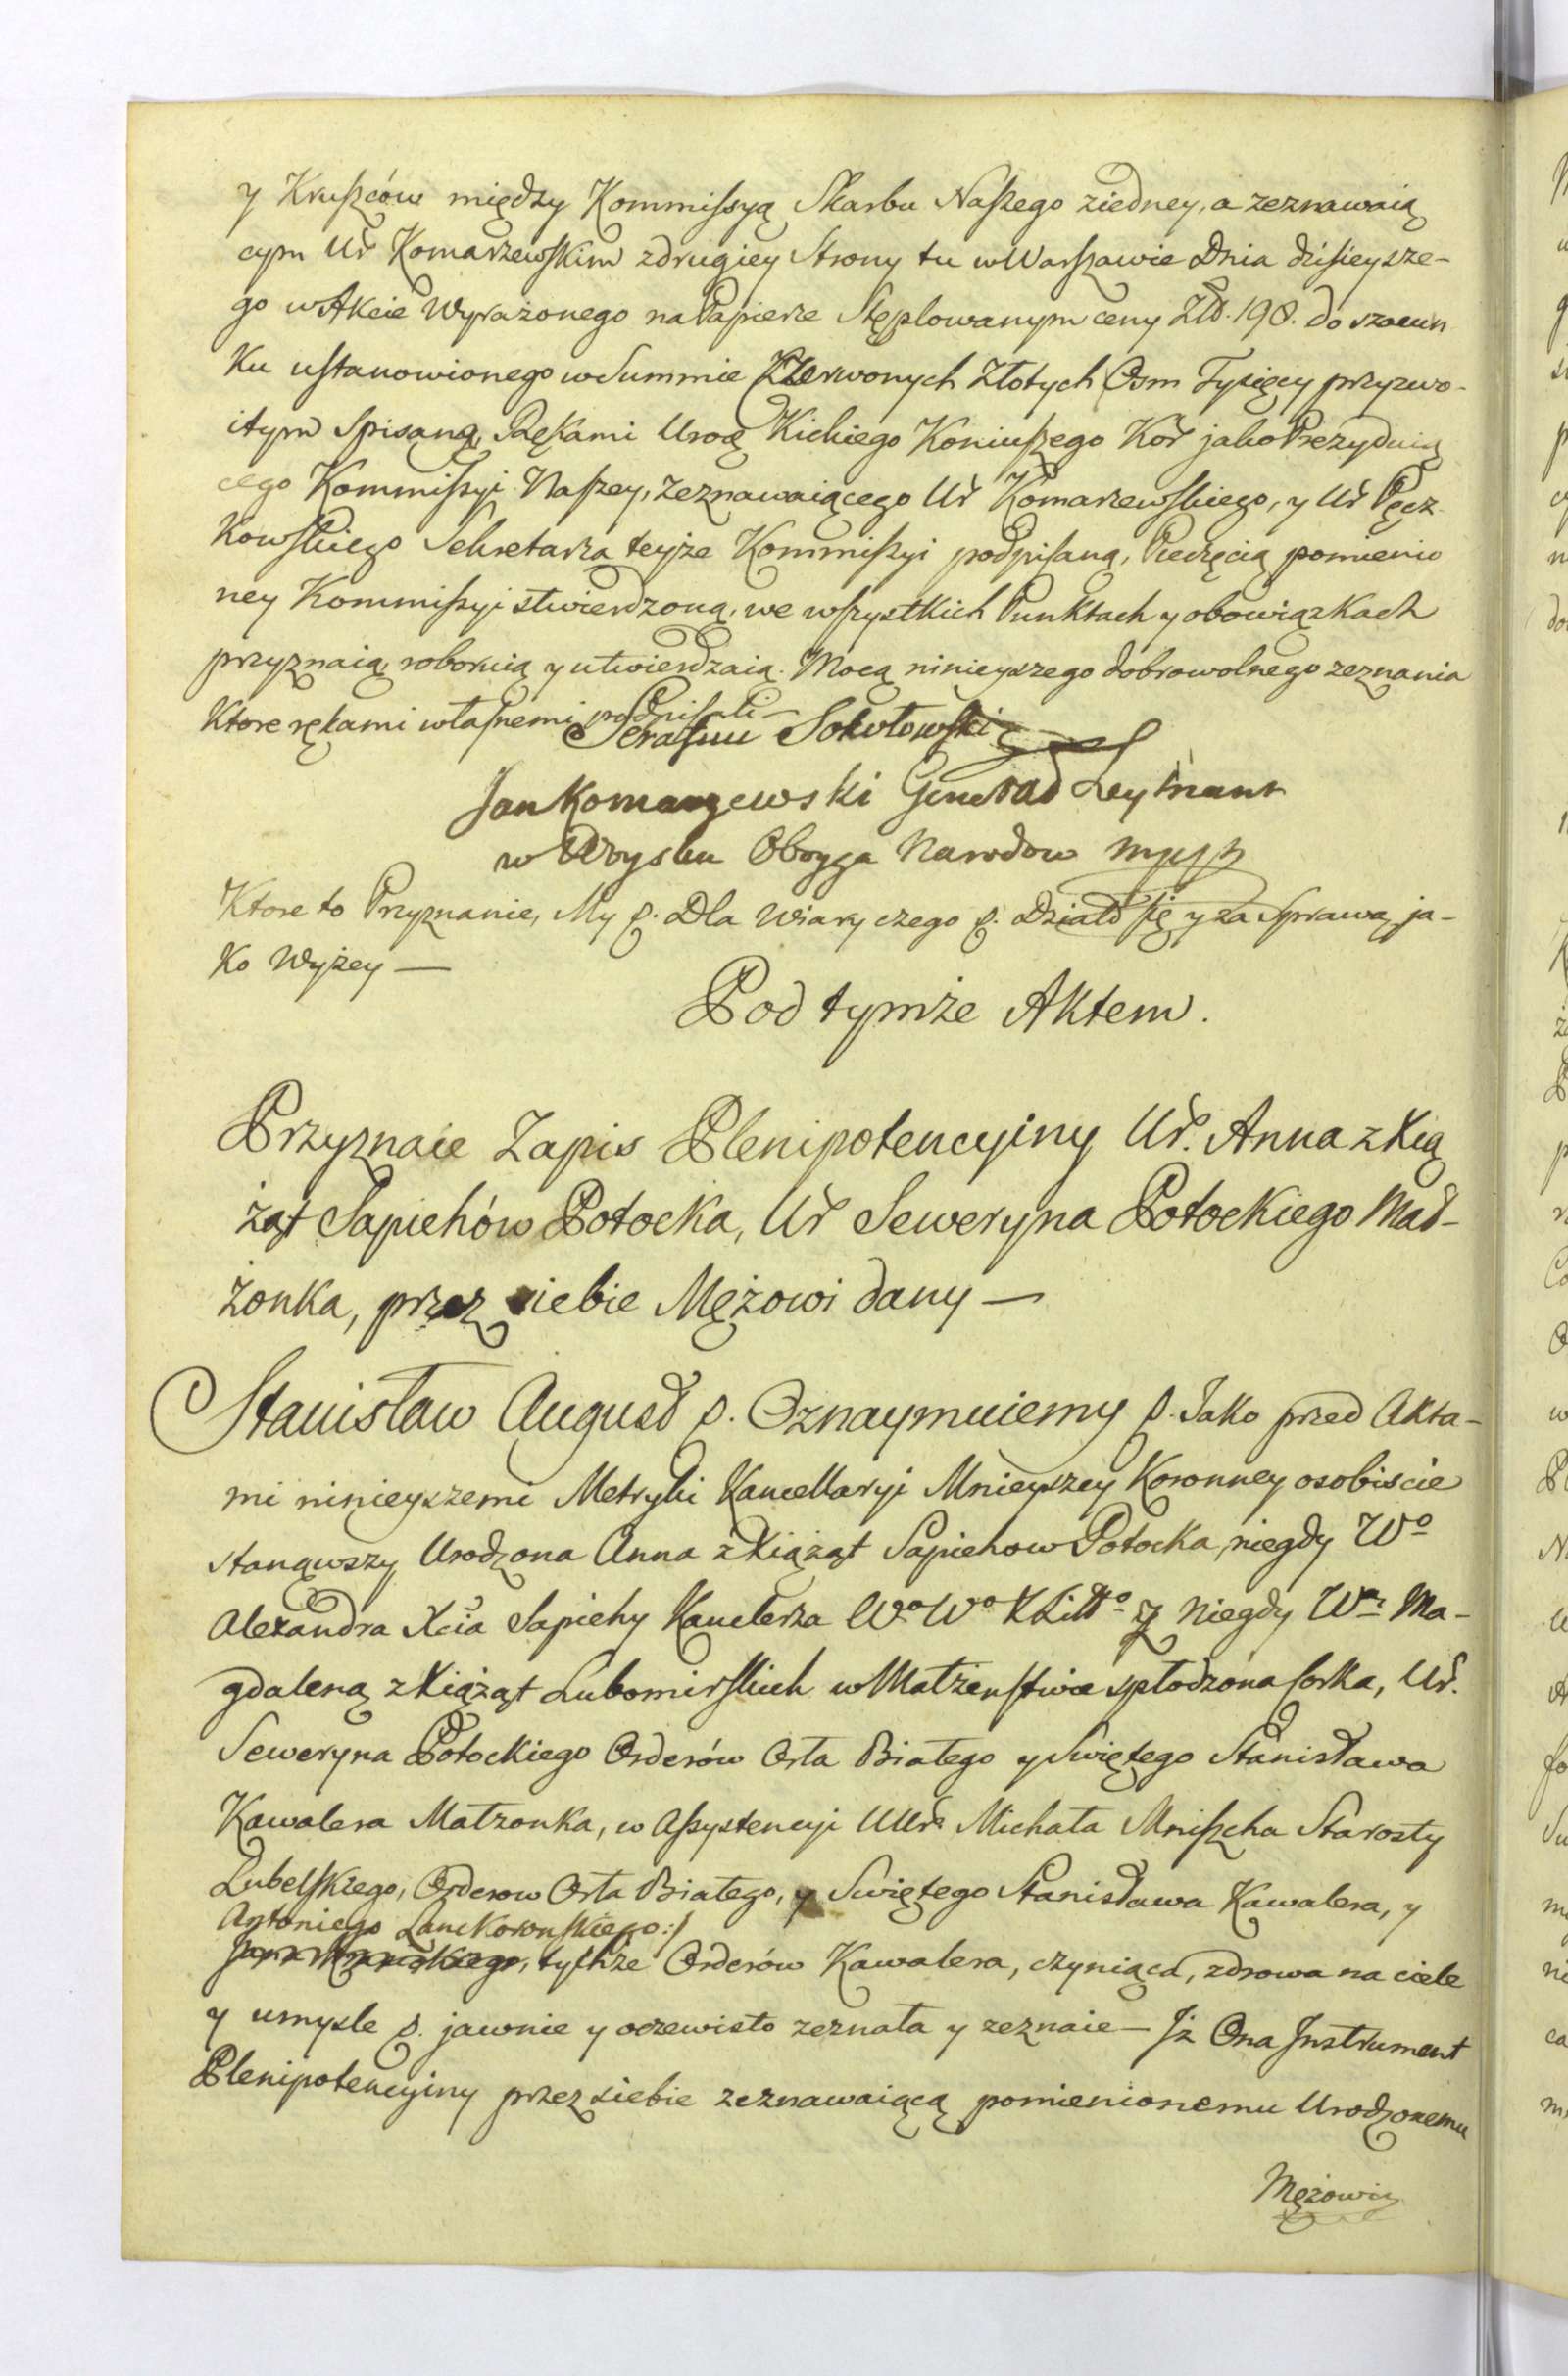 y Kruszców między Kommissyą Skarbu Naszego ziedney, a zeznawaią
cym Ur Komarzewskim zdrugiey Strony tu w Warszawie Dnia dzisieysze-
go w Akcie Wyrażonego na Papierze Stęplowanym ceny Złł. 198. do szacun
ku ustanowionego w Summie Czerwonych Złotych Osm Tysięcy przyzwo-
itym Spisaną, Rękami Urodę Kickiego Koniuszego Kor jako Prezyduią
cego Kommissyi Naszey, zeznawaiącego Ur Komarzewskiego, y Ur Pęcz
kowskiego Sekretarza teyże Kommissyi podpisaną, Pieczęcią pomienio
ney Kommissyi stwierdzoną, we wszystkich Punktach y obowiązkach
przyznaią, roboruią y utwierdzaią. Mocą ninieyszego dobrowolnego zeznania
Ktore rękami własnemi podpisali —
Serafin Sokołowski
Jan Komarzewski General Leytnant
w Woysku Oboyga Narodow mpp
Ktore to Przyznanie, My p. Dla Wiary czego p. Działo się y za Sprawą ja-
ko Wyżey —
Pod tymże Aktem.
Przyznaie Zapis Plenipotencyiny Ur. Anna z Xią
żąt Sapiehów Potocka, Ur Seweryna Potockiego Mał-
żonka, przez siebie Mężowi dany —
Stanisław August p. Oznaymuiemy p. Jako przed Akta-
mi ninieyszemi Metryki Kancellaryi Mnieyszey Koronney osobiscie
stanąwszy Urodzona Anna z Xiążąt Sapiehow Potocka, niegdy Wo
Alexandra Xcia Sapiehy Kanclerza Wo Wo X Litto y Niegdy Wa Ma-
gdaleną z Xiążąt Lubomirskich w Małżenstwie spłodzona Corka, Ur.
Seweryna Potockiego Orderów Orła Białego y Swiętego Stanisława
Kawalera Małzonka, w Assystencyi UUr Michała Mniszcha Starosty
Lubelskiego, Orderow Orła Białego, y Swiętego Stanisława Kawalera, y
Antoniego Lanckoronskiego:/
tychże Orderów Kawalera, czyniąca, zdrowa na ciele
y umysle p. jawnie y oczewisto zeznała y zeznaie — Iż Ona Instrument
Plenipotencyiny przez siebie zeznawaiącą pomienionemu Urodzonemu
Mężowi